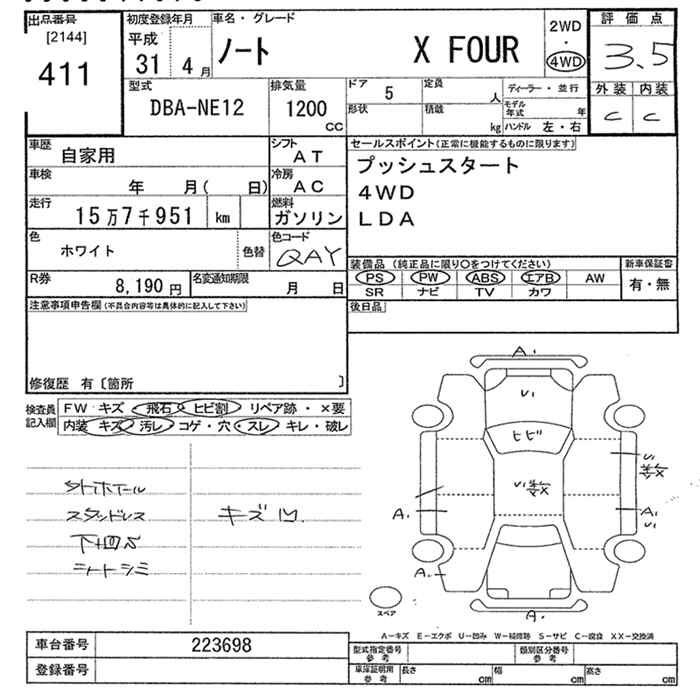 出品番号
[2144]
411
初度登録年月
平成
31 4月
車名・グレード
ノート X FOUR
2WD
・
4WD
評価点
3.5
外装 内装
C C
型式
DBA-NE12
排気量
1200
CC
ドア 5
形状
定員 人
積載 kg
ディーラー・並行
モデル年式 年
ハンドル 左・右
車歴 自家用
シフト AT
車検 年 月( 日)
冷房 AC
走行 15万7千951 km
燃料 ガソリン
色 ホワイト
色替
色コード QAY
R券 8,190円
名変通知期限 月 日
セールスポイント(正常に機能するものに限ります)
プッシュスタート
4WD
LDA
装備品(純正品に限り○をつけてください)
PS PW ABS エアB AW
SR ナビ TV カワ
新車保証書
有・無
後日品
注意事項申告欄(不具合内容等は具体的に記入して下さい)
修復歴 有〔箇所 〕
検査員記入欄
FW キズ・飛石・ヒビ割 リペア跡・×要
内装 キズ・汚レ・コゲ・穴・スレ・キレ・破レ
スタッドレス
下回S
シートシミ
キズ凹
A1
U1
ヒビ
A1
A1
U1
A1
A1
スペア
A-キズ E-エクボ U-凹み W-補修跡 S-サビ C-腐食 XX-交換済
車台番号 223698
登録番号
型式指定番号
参考
類別区分番号
参考
車庫証明用
参考
長さ cm
幅 cm
高さ cm